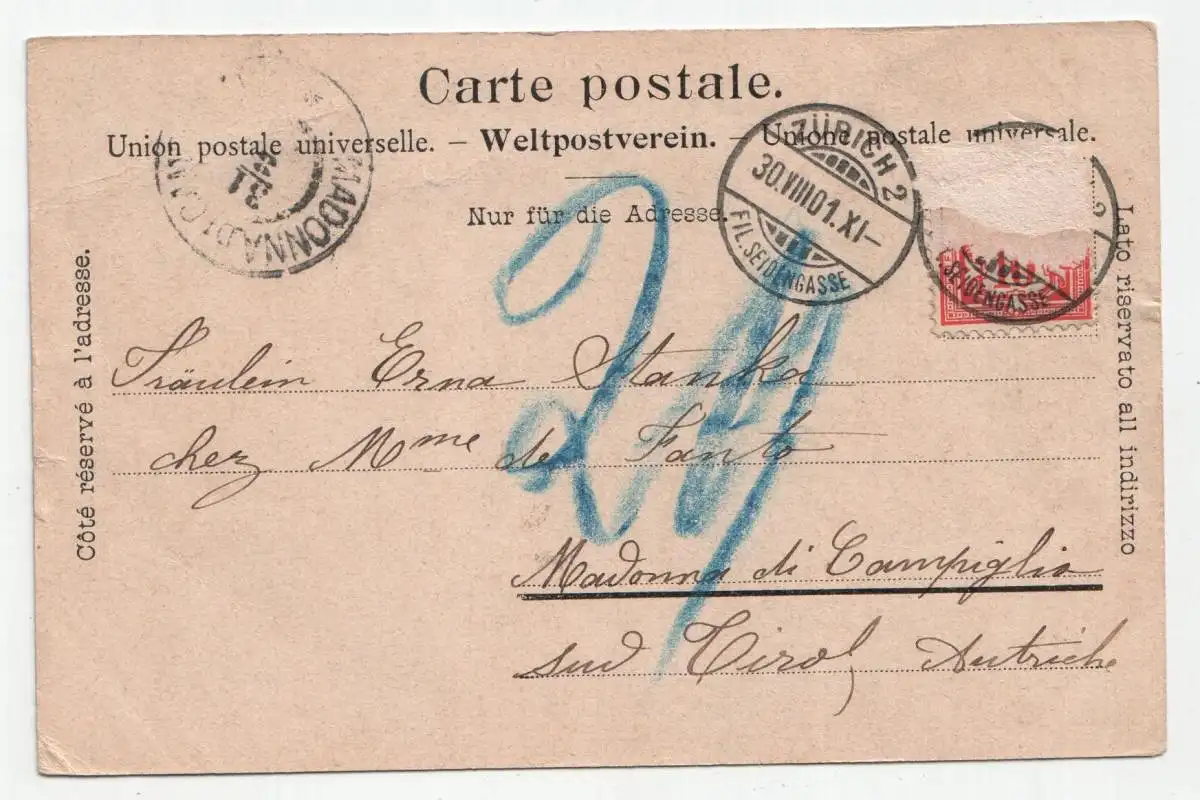 Carte postale.
Union postale universelle. – Weltpostverein. – Unione postale universale.
Nur für die Adresse.
Côté réservé à l'adresse.
Lato riservato all indirizzo
MADONNA DI CAM
31
ZÜRICH 2
30.VIII 01.XI–
FIL.SEIDENGASSE
2
SEIDENGASSE
Fräulein Erna Stanka
chez Mme de Fanto
Madonna di Campiglio
sud Tirol, Autriche